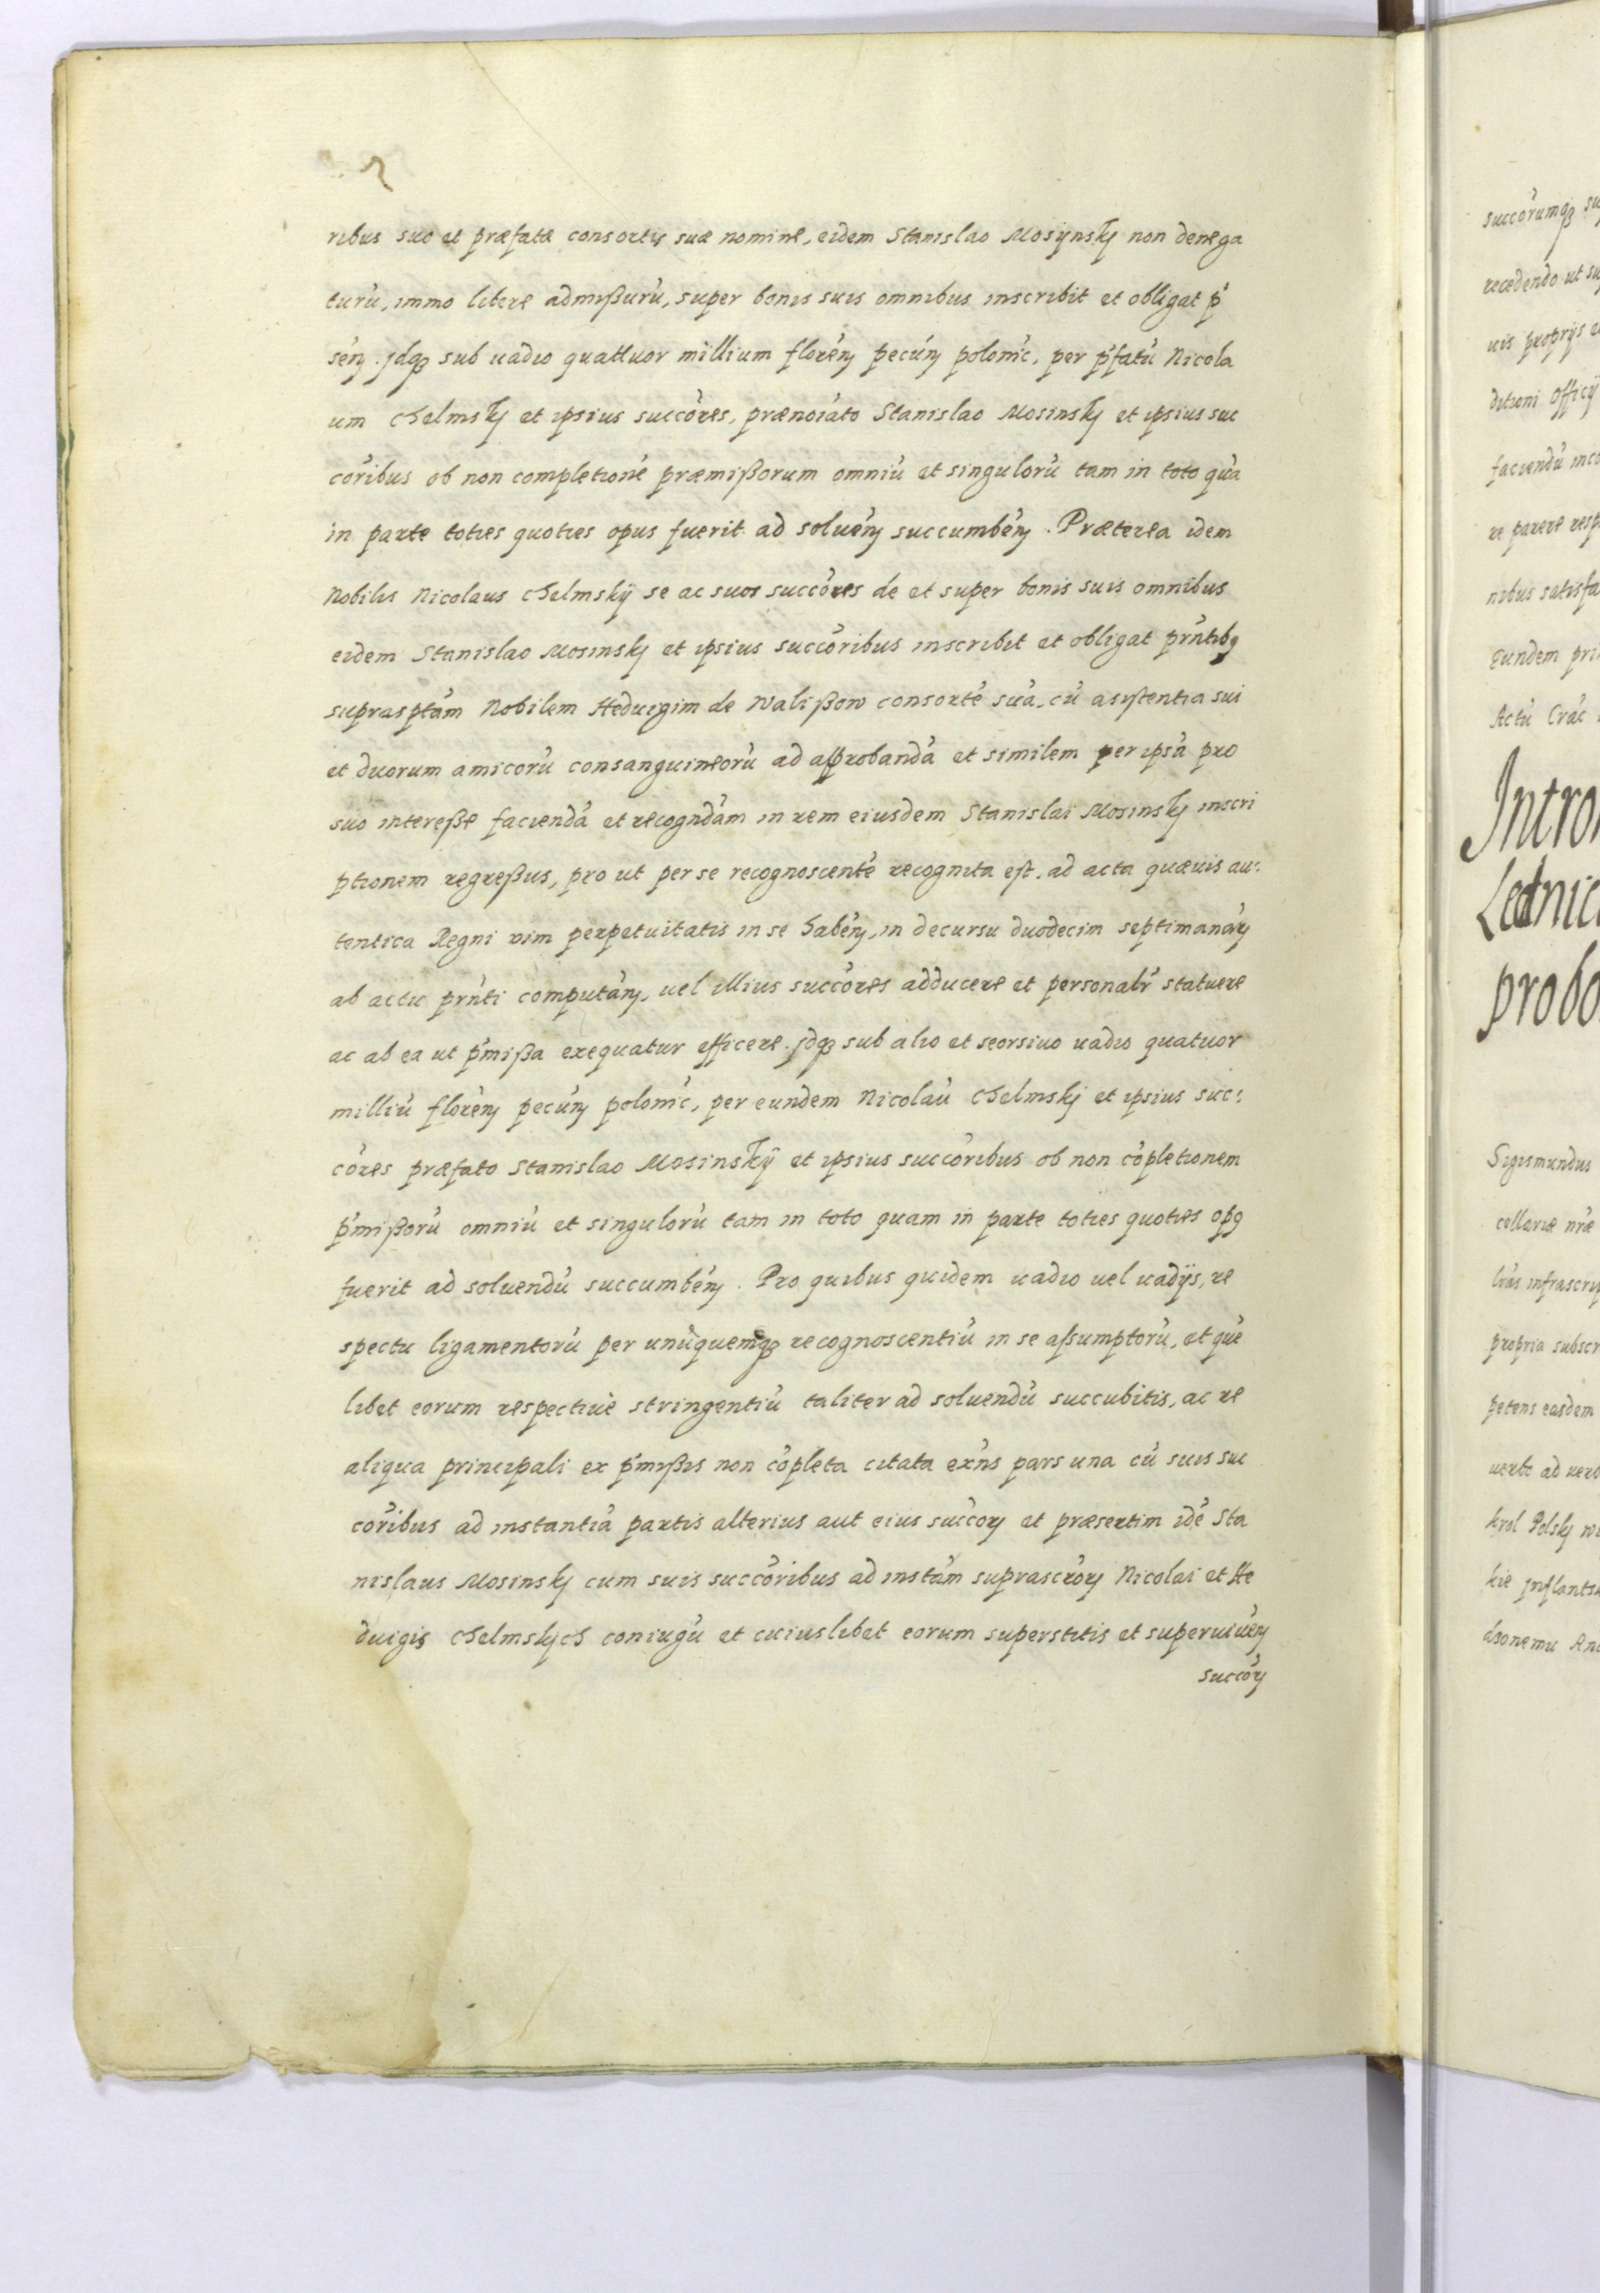 2
ribus suo et præfatæ consortis suæ nomine, eidem Stanislao Mosijnskÿ non denega
turu͂, immo libere admißuru͂, super bonis suis omnibus inscribit et obligat p͂
se͂n. Idq3 sub uadio quattuor millium flore͂n pecu͂n polonic͂, per p͂fatu͂ Nicola
um Chelmskÿ et ipsius succo͂res, prænoi͂ato Stanislao Mosinskÿ et ipsius suc
co͂ribus ob non completione͂ præmißorum omniu͂ et singuloru͂ tam in toto qua͂
in parte toties quoties opus fuerit ad solue͂n succumbe͂n. Præterea idem
Nobilis Nicolaus Chelmskÿ se ac suos succo͂res de et super bonis suis omnibus
eidem Stanislao Mosinskj et ipsius succo͂ribus inscribit et obligat pr͂ntibq
suprasp͂tam Nobilem Heduigim de Walißow consorte͂ sua͂, cu͂ asistentia sui
et duorum amicoru͂ consanguineoru͂ ad approbanda͂ et similem per ipsa͂ pro
suo interesse facienda͂ et recogn͂dam in rem eiusdem Stanislai Mosinskÿ inscri
ptionem regreßus, pro ut per se recognoscente͂ recognita est, ad acta quævis au:
tentica Regni vim perpetuitatis in se habe͂n, in decursu duodecim septimana͂ꝝ
ab actu pr͂nti computa͂n, uel illius succo͂res adducere et personalr͂ statuere
ac ab ea ut p͂mißa exequatur efficere. Idq3 sub alio et seorsiuo uadio quatuor
milliu͂ flore͂n pecu͂n polonic͂, per eundem Nicolau͂ Chelmskj et ipsius suc:
co͂res præfato Stanislao Mosinskÿ et ipsius succo͂ribus ob non co͂pletionem
p͂mißoru͂ omniu͂ et singuloru͂ tam in toto quam in parte toties quoties opq
fuerit ad soluendu͂ succumbe͂n. Pro quibus quidem uadio uel uadijs, re
spectu ligamentoru͂ per unu͂quemq3 recognoscentiu͂ in se assumptoru͂, et que͂
libet eorum respectiuè stringentiu͂ taliter ad soluendu͂ succubitis, ac re
aliqua principali ex p͂mißis non co͂pleta citata ex͂ns pars una cu͂ suis suc
co͂ribus ad instantia͂ partis alterius aut eius succo͂ꝝ et præsertim ide͂ Sta
nislaus Mosinskj cum suis succo͂ribus ad insta͂m suprascr͂oꝝ Nicolai et He
duigis Chelmskych coniugu͂ et cuiuslibet eorum superstitis et superuiue͂n
succo͂ꝝ
succo͂rumq3
recedendo ut
uis proprijs
ditioni Officij
faciendu͂
re parere
nibus
Eundem
Actu͂ Crac͂
Sigismundus
cellariæ nr͂æ
propria
petens easdem
krol Polskj